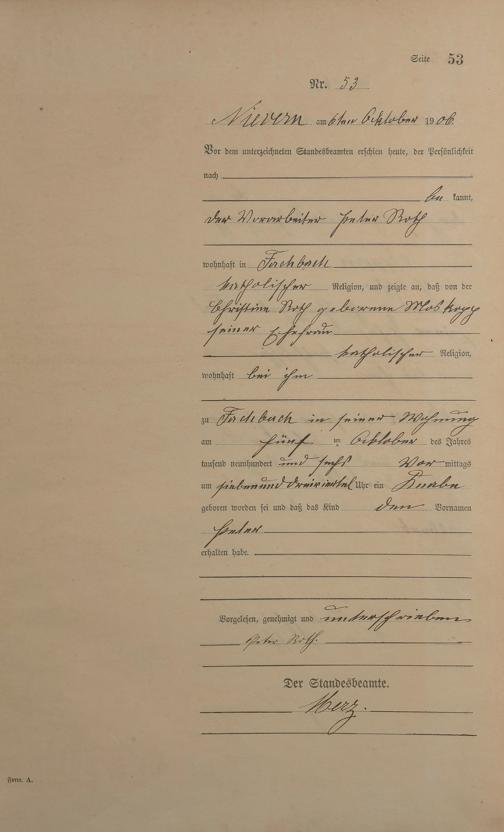 Seite 53
Nr. 53
Nievern am 6ten Oktober 1906.
Vor dem unterzeichneten Standesbeamten erschien heute, der Persönlichkeit
nach
be kannt,
der Vorarbeiter Peter Roth
wohnhaft in Fachbach
katholischer Religion, und zeigte an, daß von der
Christine Roth geborene Moskopp
seiner Ehefrau
katholischer Religion,
wohnhaft bei ihm
zu Fachbach in seiner Wohnung
am fünf ten Oktober des Jahres
tausend neunhundert und sechs Vor mittags
um sieben und dreiviertel Uhr ein Knabe
geboren worden sei und daß das Kind den Vornamen
Peter
erhalten habe.
Vorgelesen, genehmigt und unterschrieben
Peter Roth.
Der Standesbeamte.
Merz.
Form. A.